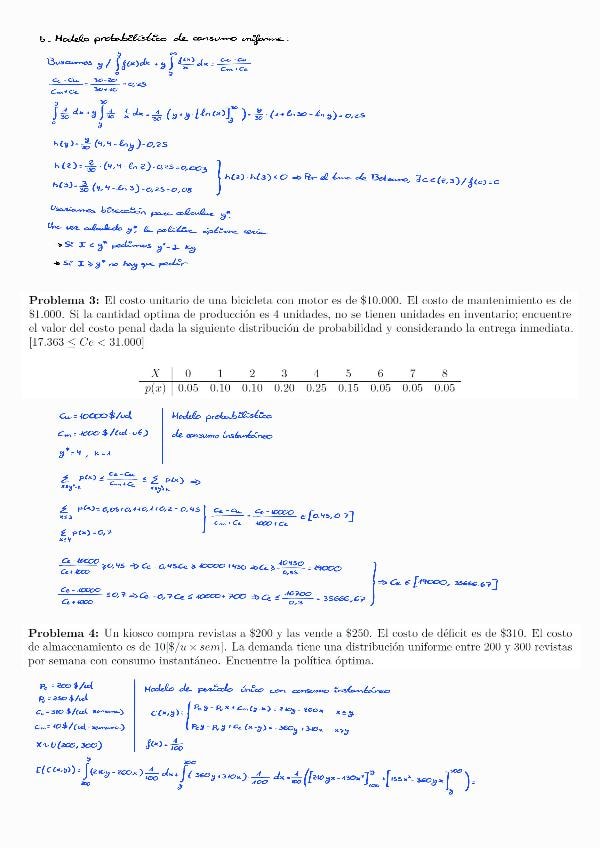 b. Modelo probabilístico de consumo uniforme.
Buscamos y / ∫₀^y f(x)dx + y ∫_y^∞ f(x)/x dx = (Ce - Cu)/(Cm + Ce)
(Ce - Cu)/(Cm + Ce) = (30-20)/(30+10) = 0,25
∫₀^y 1/30 dx + y ∫_y^30 1/30 · 1/x dx = 1/30 (y + y·[ln(x)]_y^30) = y/30 · (1 + ln30 - lny) = 0,25
h(y) = y/30 (4,4 - lny) - 0,25
h(2) = 2/30 · (4,4 - ln2) - 0,25 = -0,003
h(3) = 3/30 (4,4 - ln3) - 0,25 = 0,08
h(2)·h(3) < 0 ⇒ Por el tma de Bolzano, ∃ c ∈ (2,3) / f(c) = 0
Usaríamos bisección para calcular y*.
Una vez calculado y*, la política óptima sería
→ Si I < y* pedimos y* - I kg
→ Si I ≥ y* no hay que pedir
Problema 3: El costo unitario de una bicicleta con motor es de $10.000. El costo de mantenimiento es de
$1.000. Si la cantidad optima de producción es 4 unidades, no se tienen unidades en inventario; encuentre
el valor del costo penal dada la siguiente distribución de probabilidad y considerando la entrega inmediata.
[17.363 ≤ Cc < 31.000]
X 0 1 2 3 4 5 6 7 8
p(x) 0.05 0.10 0.10 0.20 0.25 0.15 0.05 0.05 0.05
Cu = 10000 $/ud
Cm = 1000 $/(ud·ut)
y* = 4, k = 1
Modelo probabilístico
de consumo instantáneo
∑ p(x) ≤ (Ce - Cu)/(Cm + Ce) ≤ ∑ p(x) ⇒
∑_{x≤3} p(x) = 0,05+0,1+0,1+0,2 = 0,45
∑_{x≤4} p(x) = 0,7
(Ce - Cu)/(Cm + Ce) = (Ce - 10000)/(1000 + Ce) ∈ [0.45, 0.7]
(Ce - 10000)/(Ce + 1000) ≥ 0,45 ⇒ Ce - 0,45Ce ≥ 10000 + 450 ⇒ Ce ≥ 10450/0,55 = 19000
(Ce - 10000)/(Ce + 1000) ≤ 0,7 ⇒ Ce - 0,7Ce ≤ 10000 + 700 ⇒ Ce ≤ 10700/0,3 = 35666,67
⇒ Ce ∈ [19000, 35666.67]
Problema 4: Un kiosco compra revistas a $200 y las vende a $250. El costo de déficit es de $310. El costo
de almacenamiento es de 10[$/u × sem]. La demanda tiene una distribución uniforme entre 200 y 300 revistas
por semana con consumo instantáneo. Encuentre la política óptima.
Pc = 200 $/ud
Pv = 250 $/ud
Ce = 310 $/(ud·semana)
Cm = 10 $/(ud·semana)
X ~ U(200, 300)
Modelo de periodo único con consumo instantáneo
C(x,y) = { Pc y - Pv x + Cm(y-x) = 210y - 260x x ≤ y
Pc y - Pv y + Ce(x-y) = -360y + 310x x > y
f(x) = 1/100
E(C(x,y)) = ∫(210y - 260x) 1/100 dx + ∫(-360y + 310x) · 1/100 dx = 1/100 ([210yx - 130x²] + [155x² - 360yx]) =